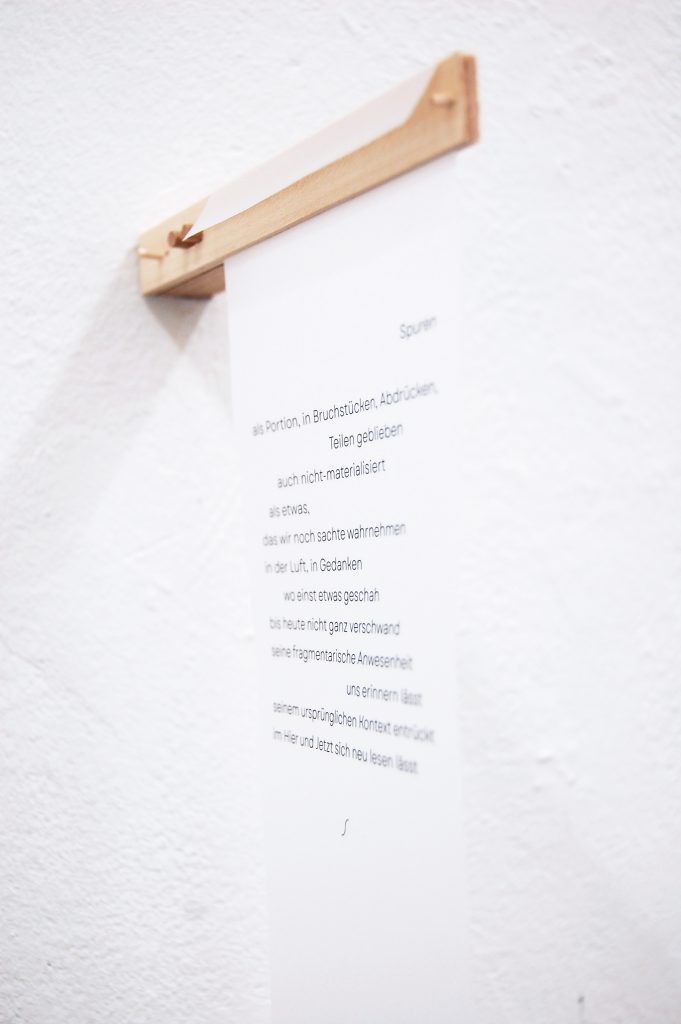 Spuren
als Portion, in Bruchstücken, Abdrücken,
Teilen geblieben
auch nicht-materialisiert
als etwas,
das wir noch sachte wahrnehmen
in der Luft, in Gedanken
wo einst etwas geschah
bis heute nicht ganz verschwand
seine fragmentarische Anwesenheit
uns erinnern lässt
seinem ursprünglichen Kontext entrückt
im Hier und Jetzt sich neu lesen lässt
ʃ